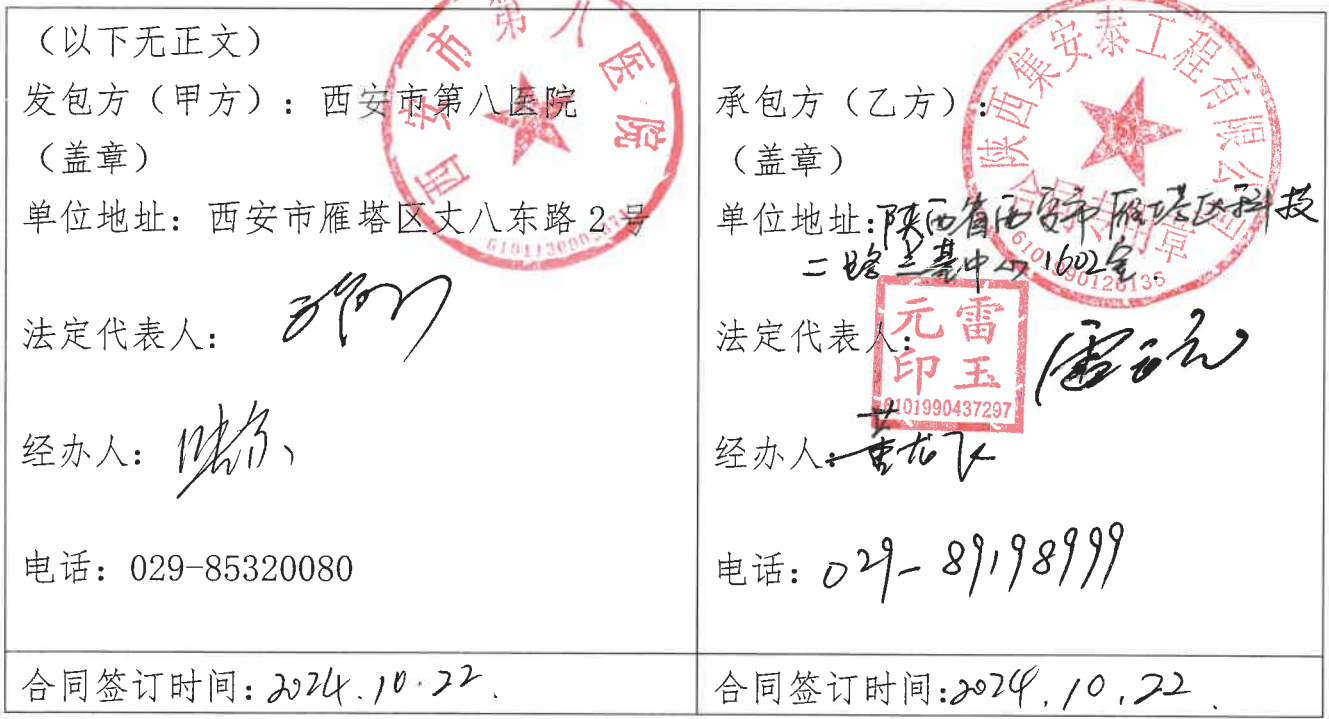 （以下无正文）
发包方（甲方）：西安市第八医院
（盖章）
单位地址：西安市雁塔区丈八东路 2 号
法定代表人：
经办人：
电话：029-85320080
合同签订时间：2024.10.22.
西安市第八医院
承包方（乙方）：
（盖章）
单位地址：陕西省西安市雁塔区科技
二路兰基中心1602室.
法定代表人：雷玉元
经办人：黄龙飞
电话：029-89198999
合同签订时间：2024.10.22.
陕西集安泰工程有限公司
合同专用章
6101990126136
雷玉
元印
6101990437297